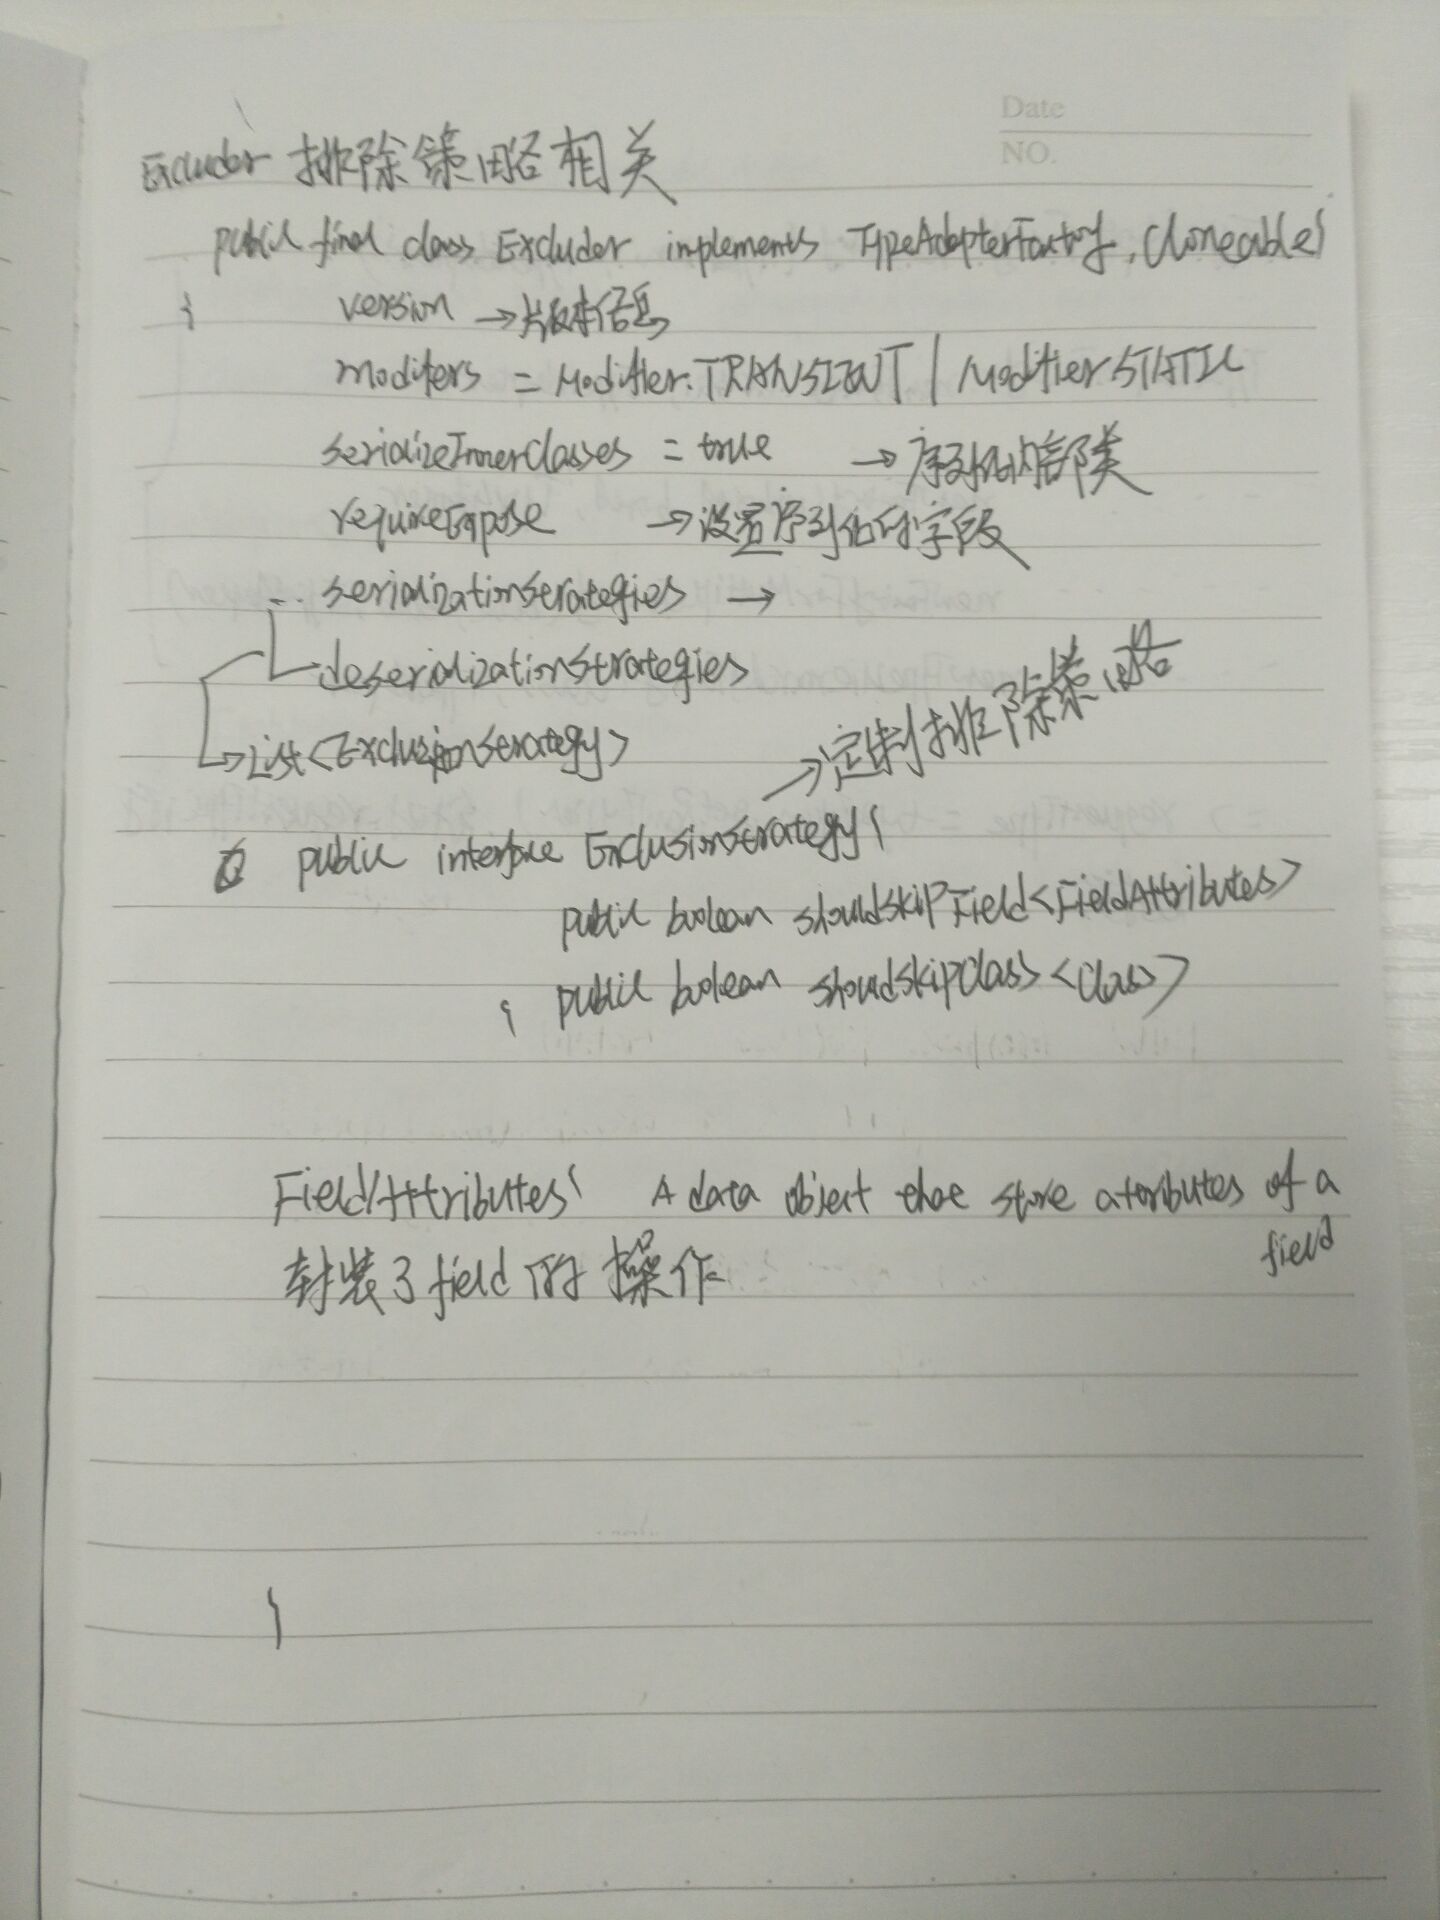 Date
NO.
Excluder 排除策略相关
public final class Excluder implements TypeAdapterFactory, Cloneable{
version → 版本信息
modifiers = Modifier.TRANSIENT | Modifier STATIC
serializeInnerClasses = true → 序列化内部类
requireExpose → 设置序列化的字段
serializationStrategies →
deserializationStrategies
List<ExclusionStrategy>
→ 定制排除策略
public interface ExclusionStrategy{
public boolean shouldSkipField<FieldAttributes>
public boolean shouldSkipClass<Class>
FieldAttributes{ A data object that store attributes of a
field
封装了field的操作
}